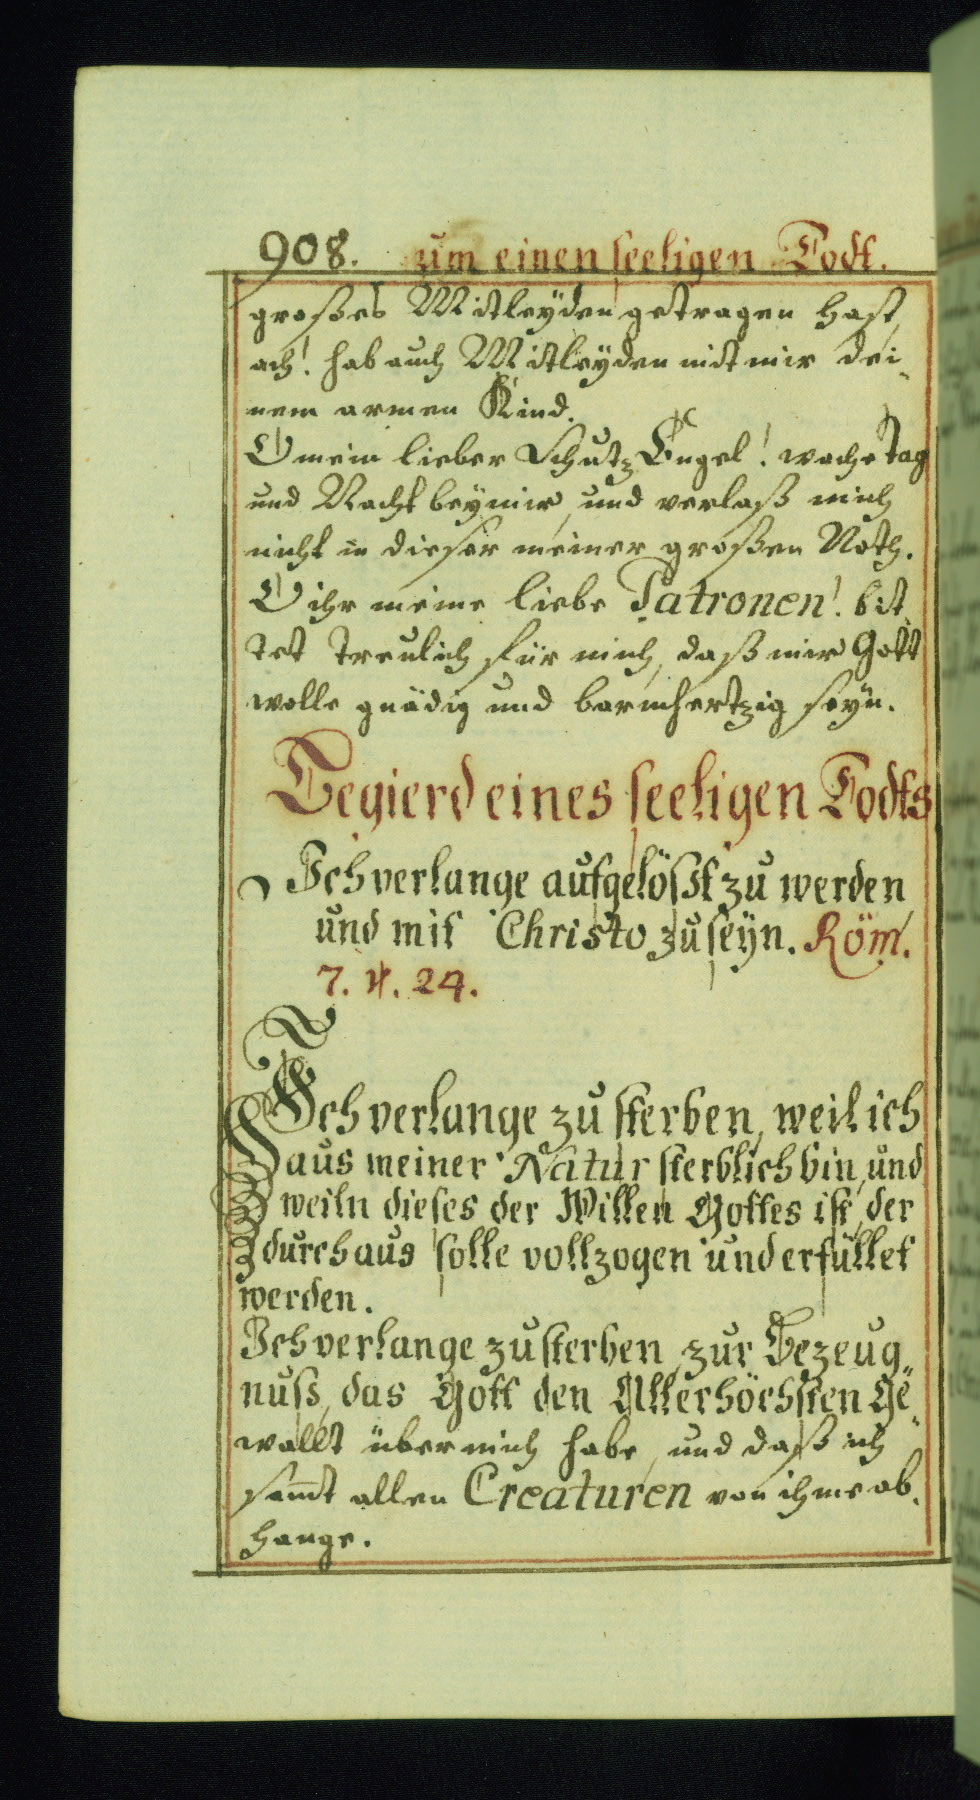 908. zum einen seeligen Todt.
großes Mitleyden getragen hast,
ach! hab auch Mitleyden mit mir dei¬
nem armen Kind.
O mein lieber Schutz Engel! wache Tag
und Nacht bey mir, und verlaß mich
nicht in dieser meiner großen Noth.
O ihr meine liebe Patronen! bit¬
tet treulich für mich, daß mir Gott
wolle gnädig und barmhertzig seyn.
Begierd eines seeligen Todts
Ich verlange aufgelösst zu werden
und mit Christo zu seyn. Röm.
7. V. 24.
Ich verlange zu sterben, weil ich
aus meiner Natur sterblich bin, und
weiln dieses der Willen Gottes ist, der
durchaus solle vollzogen und erfüllet
werden.
Ich verlange zu sterben, zur Bezeug„
nuss, das Gott den Allerhöchsten Ge„
wallt über mich habe, und daß ich
sam̄t allen Creaturen von ihme ab„
hange.